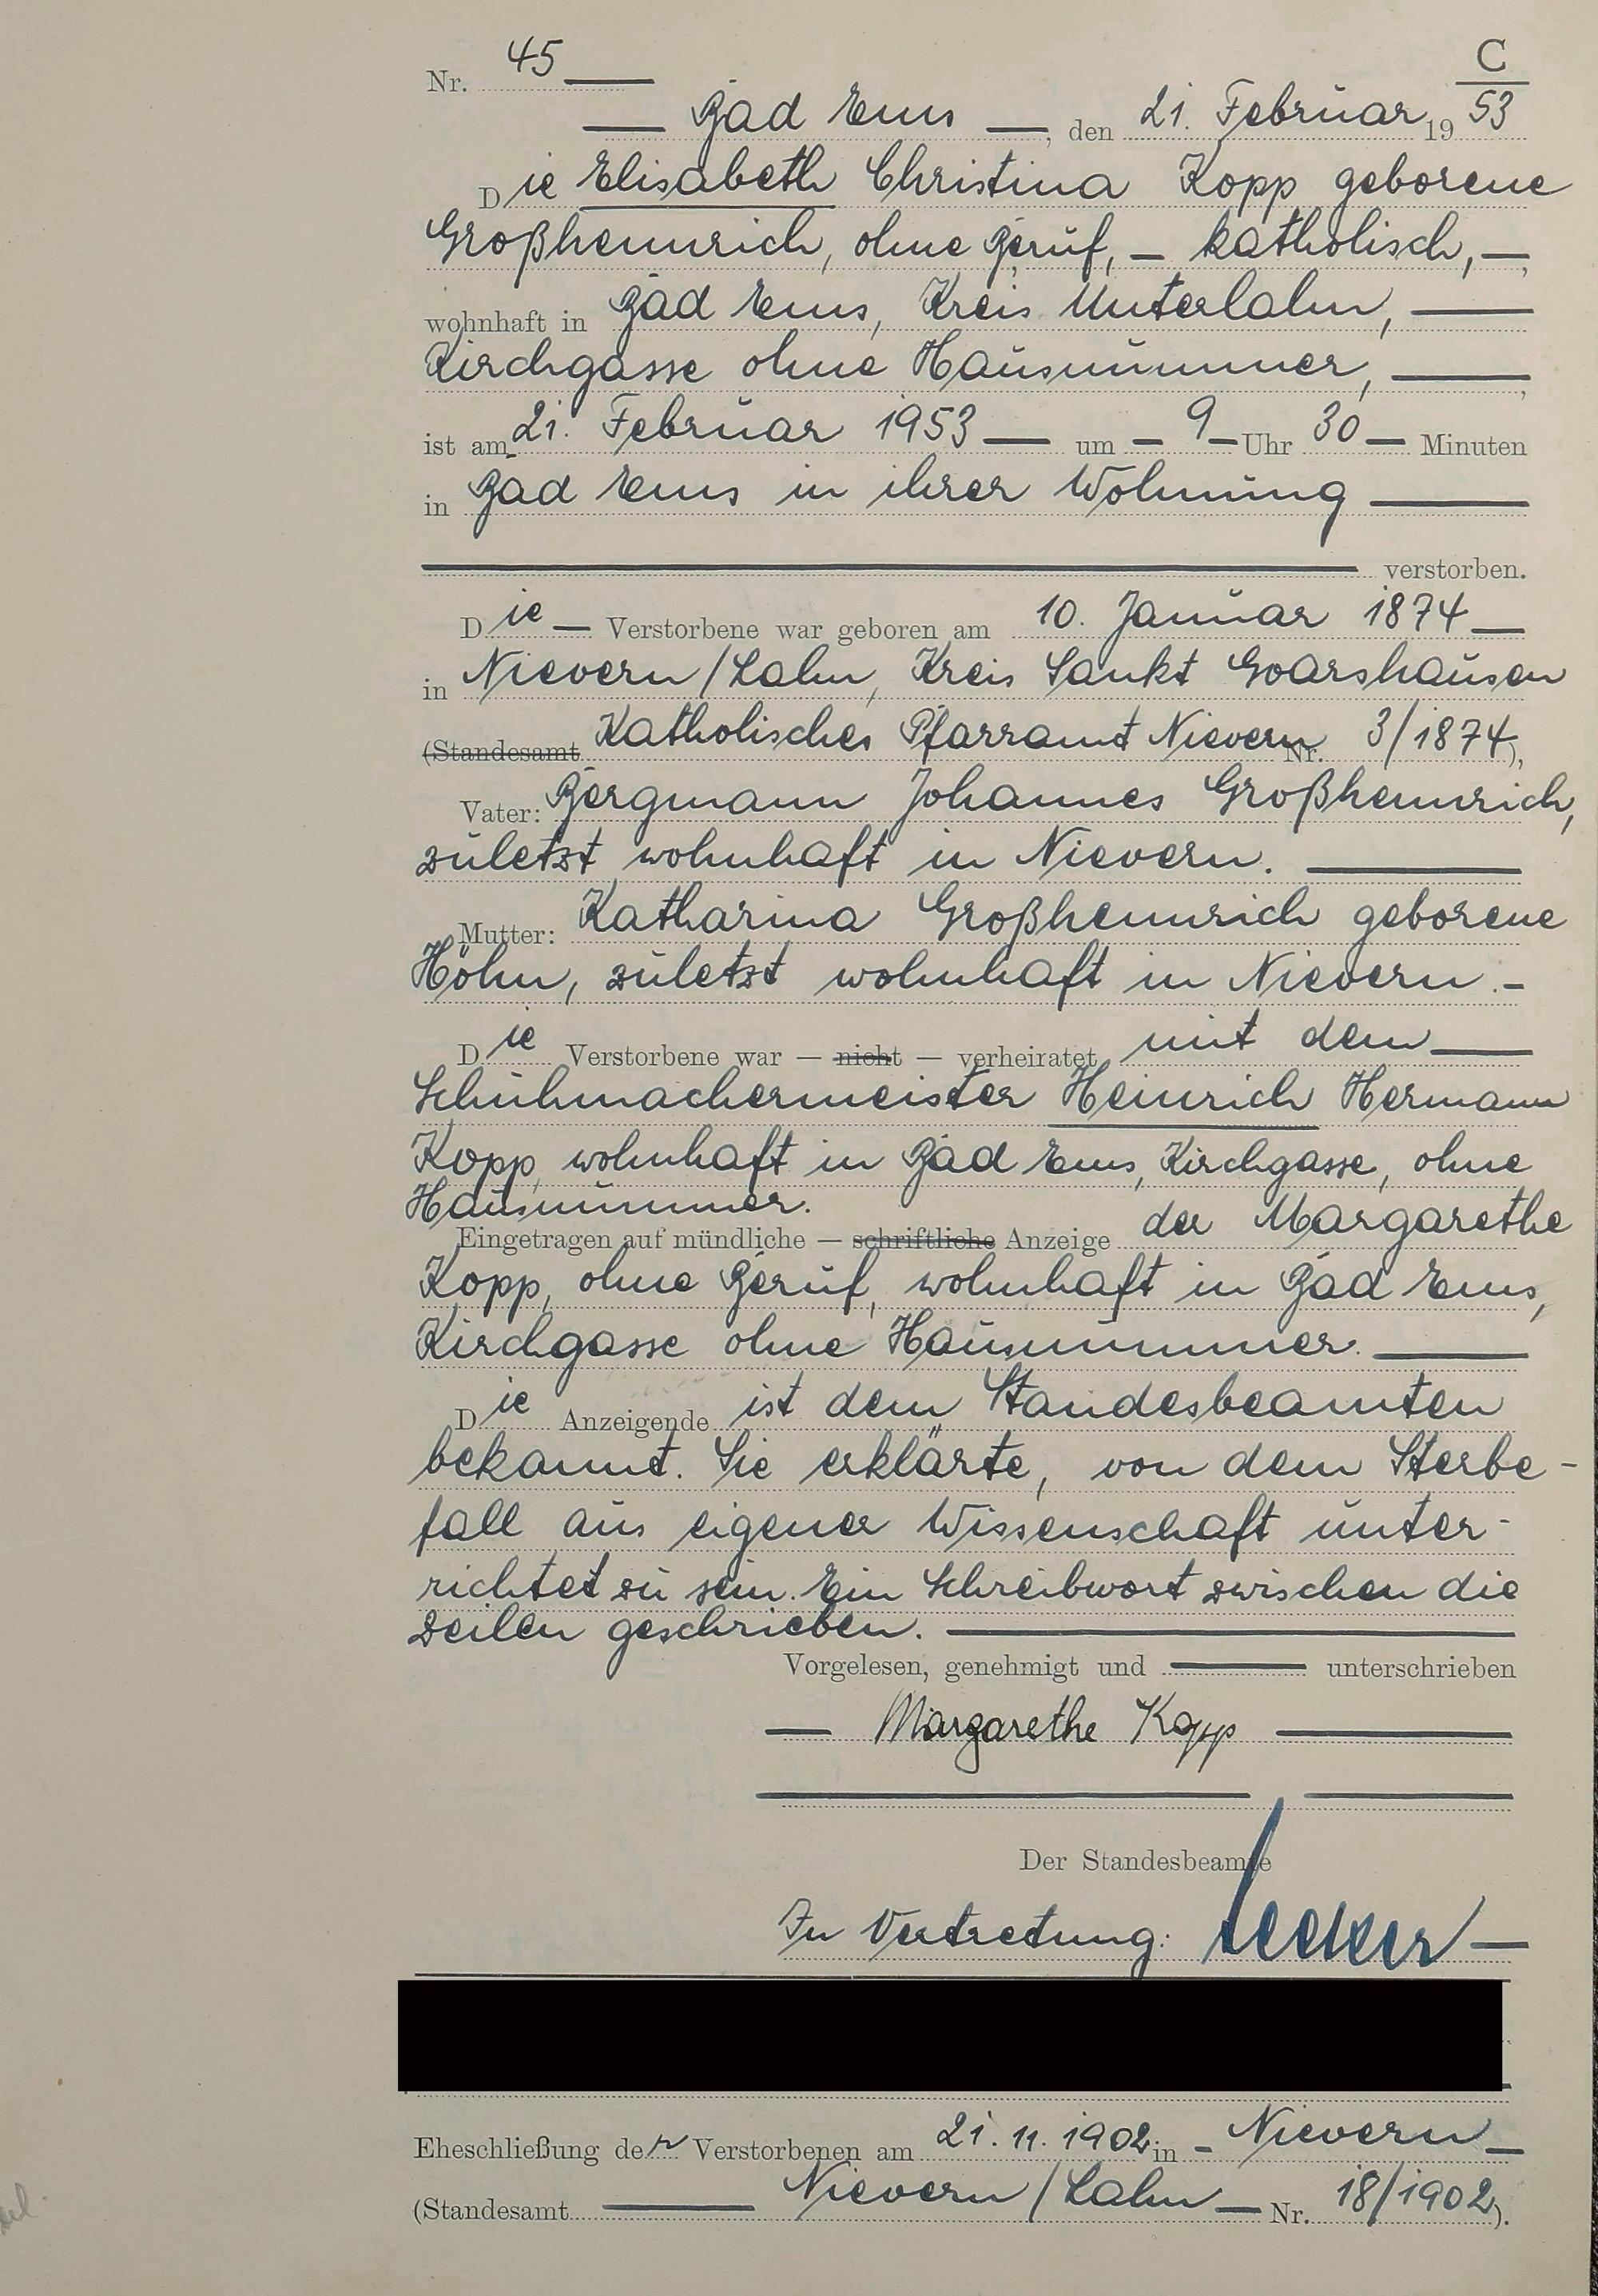 C
Nr. 45
Bad Ems, den 21. Februar 1953
Die Elisabeth Christina Kopp geborene
Großhennrich, ohne Beruf, – katholisch, –
wohnhaft in Bad Ems, Kreis Unterlahn,
Kirchgasse ohne Hausnummer,
ist am 21. Februar 1953 um – 9 – Uhr 30 – Minuten
in Bad Ems in ihrer Wohnung
verstorben.
Die — Verstorbene war geboren am 10. Januar 1874
in Nievern/Lahn, Kreis Sankt Goarshausen
(Standesamt Katholisches Pfarramt Nievern Nr. 3/1874),
Vater: Bergmann Johannes Großhennrich,
zuletzt wohnhaft in Nievern.
Mutter: Katharina Großhennrich geborene
Höhn, zuletzt wohnhaft in Nievern. –
Die Verstorbene war — nicht — verheiratet mit dem
Schuhmachermeister Heinrich Hermann
Kopp, wohnhaft in Bad Ems, Kirchgasse, ohne
Hausnummer.
Eingetragen auf mündliche — schriftliche Anzeige der Margarethe
Kopp, ohne Beruf, wohnhaft in Bad Ems,
Kirchgasse ohne Hausnummer.
Die Anzeigende ist dem Standesbeamten
bekannt. Sie erklärte, von dem Sterbe-
fall aus eigener Wissenschaft unter-
richtet zu sein. Ein Schreibwort zwischen die
Zeilen geschrieben.
Vorgelesen, genehmigt und unterschrieben
Margarethe Kopp
Der Standesbeamte
In Vertretung:
Eheschließung der Verstorbenen am 21.11.1902 in – Nievern –
(Standesamt Nievern/Lahn — Nr. 18/1902).